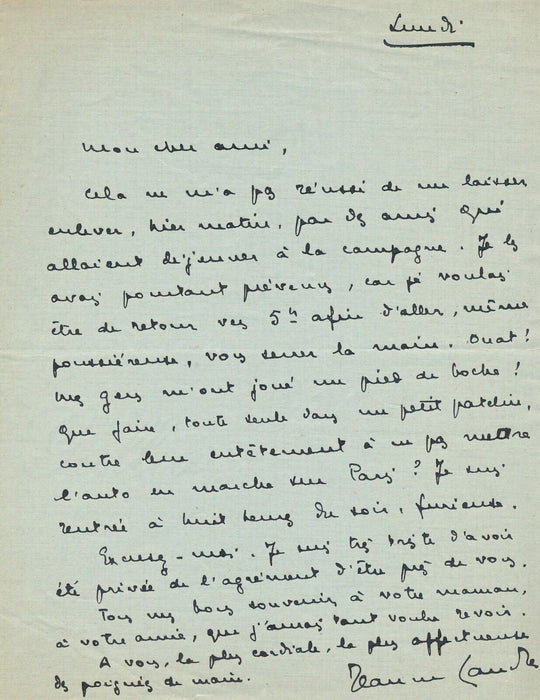 Lundi
Mon cher ami,
Cela ne m'a pas réussi de me laisser
enlever, hier matin, par des amis qui
allaient déjeuner à la campagne. Je les
avais pourtant prévenus, car je voulais
être de retour vers 5h afin d'aller, même
poussiéreuse, vous serrer la main. Ouat!
mes gens m'ont joué un pied de boche!
Que faire, toute seule dans un petit patelin,
contre leur entêtement à ne pas mettre
l'auto en marche sur Paris? Je suis
rentrée à huit heures du soir, furieuse.
Excusez-moi. Je suis très triste d'avoir
été privée de l'agrément d'être près de vous.
Tous mes bons souvenirs à votre maman,
à votre amie, que j'aurais tant voulu revoir.
A vous, la plus cordiale, la plus affectueuse
des poignées de main. Jeanne